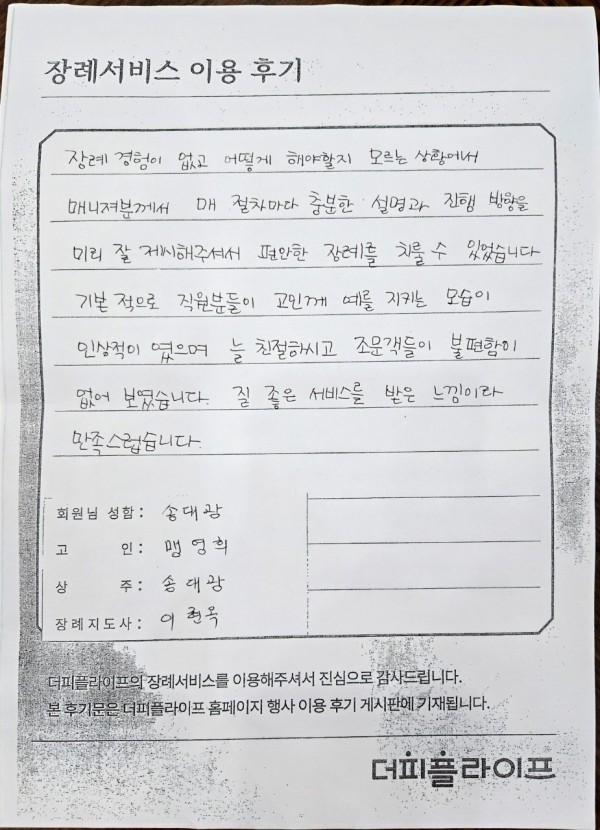 장례서비스 이용 후기
장례 경험이 없고 어떻게 해야할지 모르는 상황에서
매니져분께서 매 절차마다 충분한 설명과 진행 방향을
미리 잘 제시해주셔서 편안한 장례를 치룰 수 있었습니다
기본적으로 직원분들이 고인께 예를 지키는 모습이
인상적이 였으며 늘 친절하시고 조문객들이 불편함이
없어 보였습니다. 질 좋은 서비스를 받은 느낌이라
만족스럽습니다.
회원님 성함 : 송대광
고 인 : 맹영희
상 주 : 송대광
장례지도사 : 이현옥
더피플라이프의 장례서비스를 이용해주셔서 진심으로 감사드립니다.
본 후기문은 더피플라이프 홈페이지 행사 이용 후기 게시판에 기재됩니다.
더피플라이프